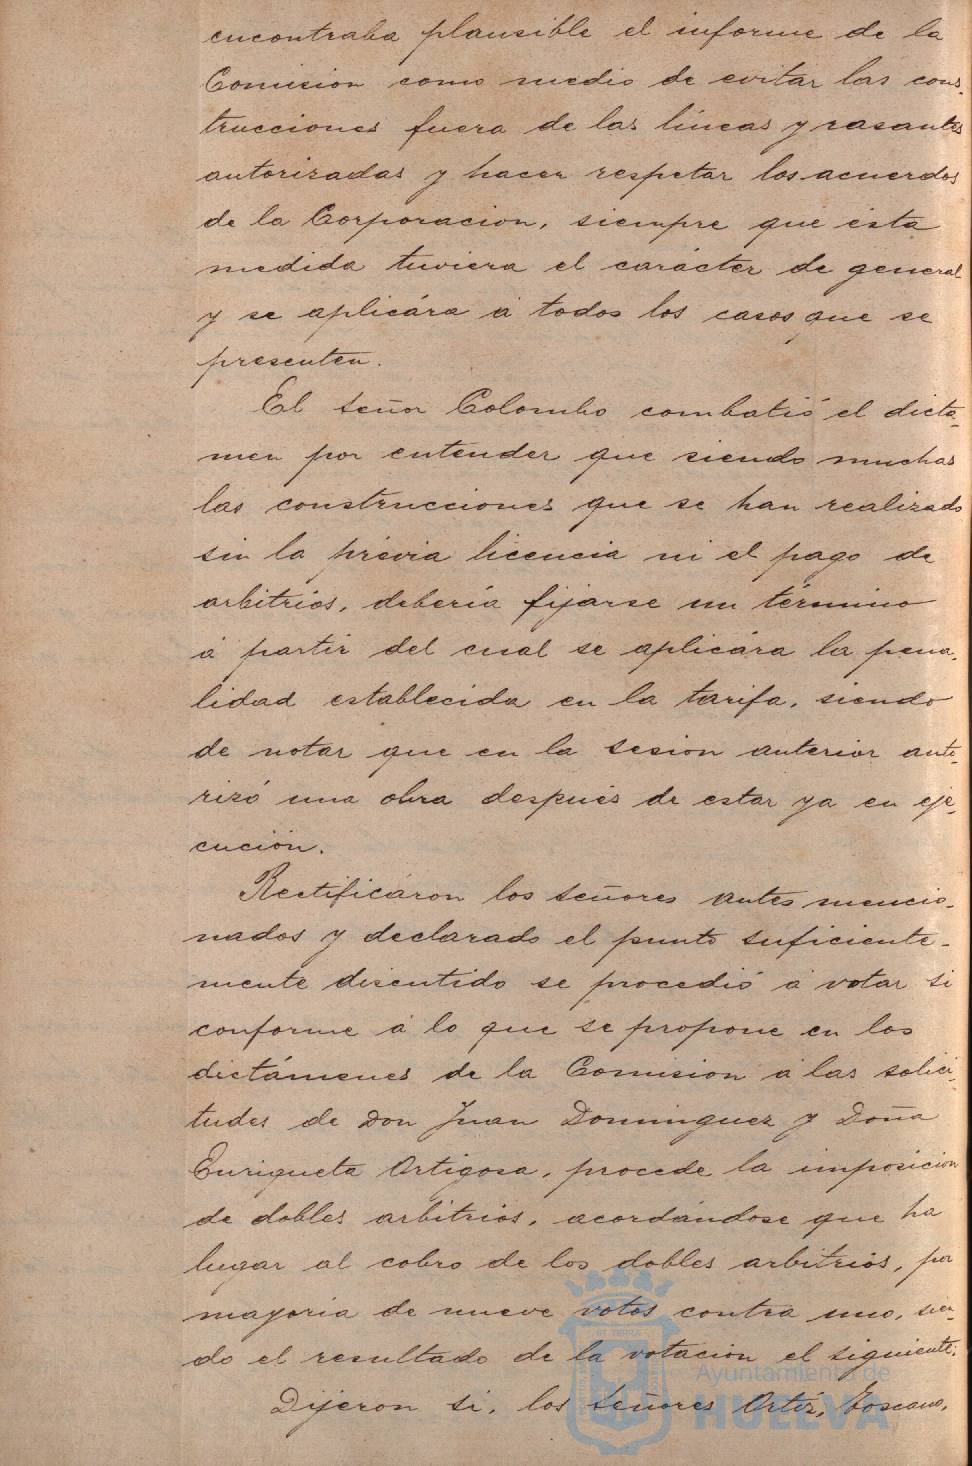 encontraba plausible el informe de la
Comision como medio de evitar las cons-
trucciones fuera de las líneas y rasantes
autorizadas y hacer respetar los acuerdos
de la Corporacion, siempre que ésta
medida tuviera el carácter de general
y se aplicára á todos los casos que se
presenten.
El señor Colombo combatió el dicta-
men por entender que siendo muchas
las construcciones que se han realizado
sin la prévia licencia ni el pago de
arbitrios, debería fijarse un término
á partir del cual se aplicára la pena-
lidad establecida en la tarifa, siendo
de notar que en la sesion anterior auto-
rizó una obra después de estar ya en eje-
cución.
Rectificáron los señores antes mencio-
nados y declarado el punto suficiente-
mente discutido se procedió á votar si
conforme á lo que se propone en los
dictámenes de la Comision á las solici-
tudes de Don Juan Dominguez y Doña
Enriqueta Ortigosa, procede la imposicion
de dobles arbitrios, acordándose que ha
lugar al cobro de los dobles arbitrios, por
mayoria de nueve votos contra uno, sien-
do el resultado de la votacion el siguiente:
Dijeron si, los señores Ortiz, Toscano,
Ayuntamiento de
HUELVA